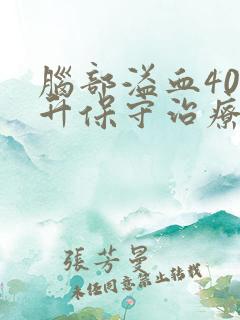 腦部溢血40
升保守治療
張芳曼
未任同意禁止转载